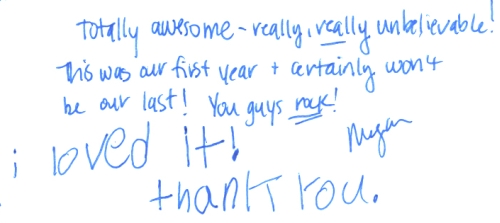 Totally awesome - really, really unbelievable!
This was our first year + certainly won't
be our last! You guys rock!
i loved it!
Megan
thank you.